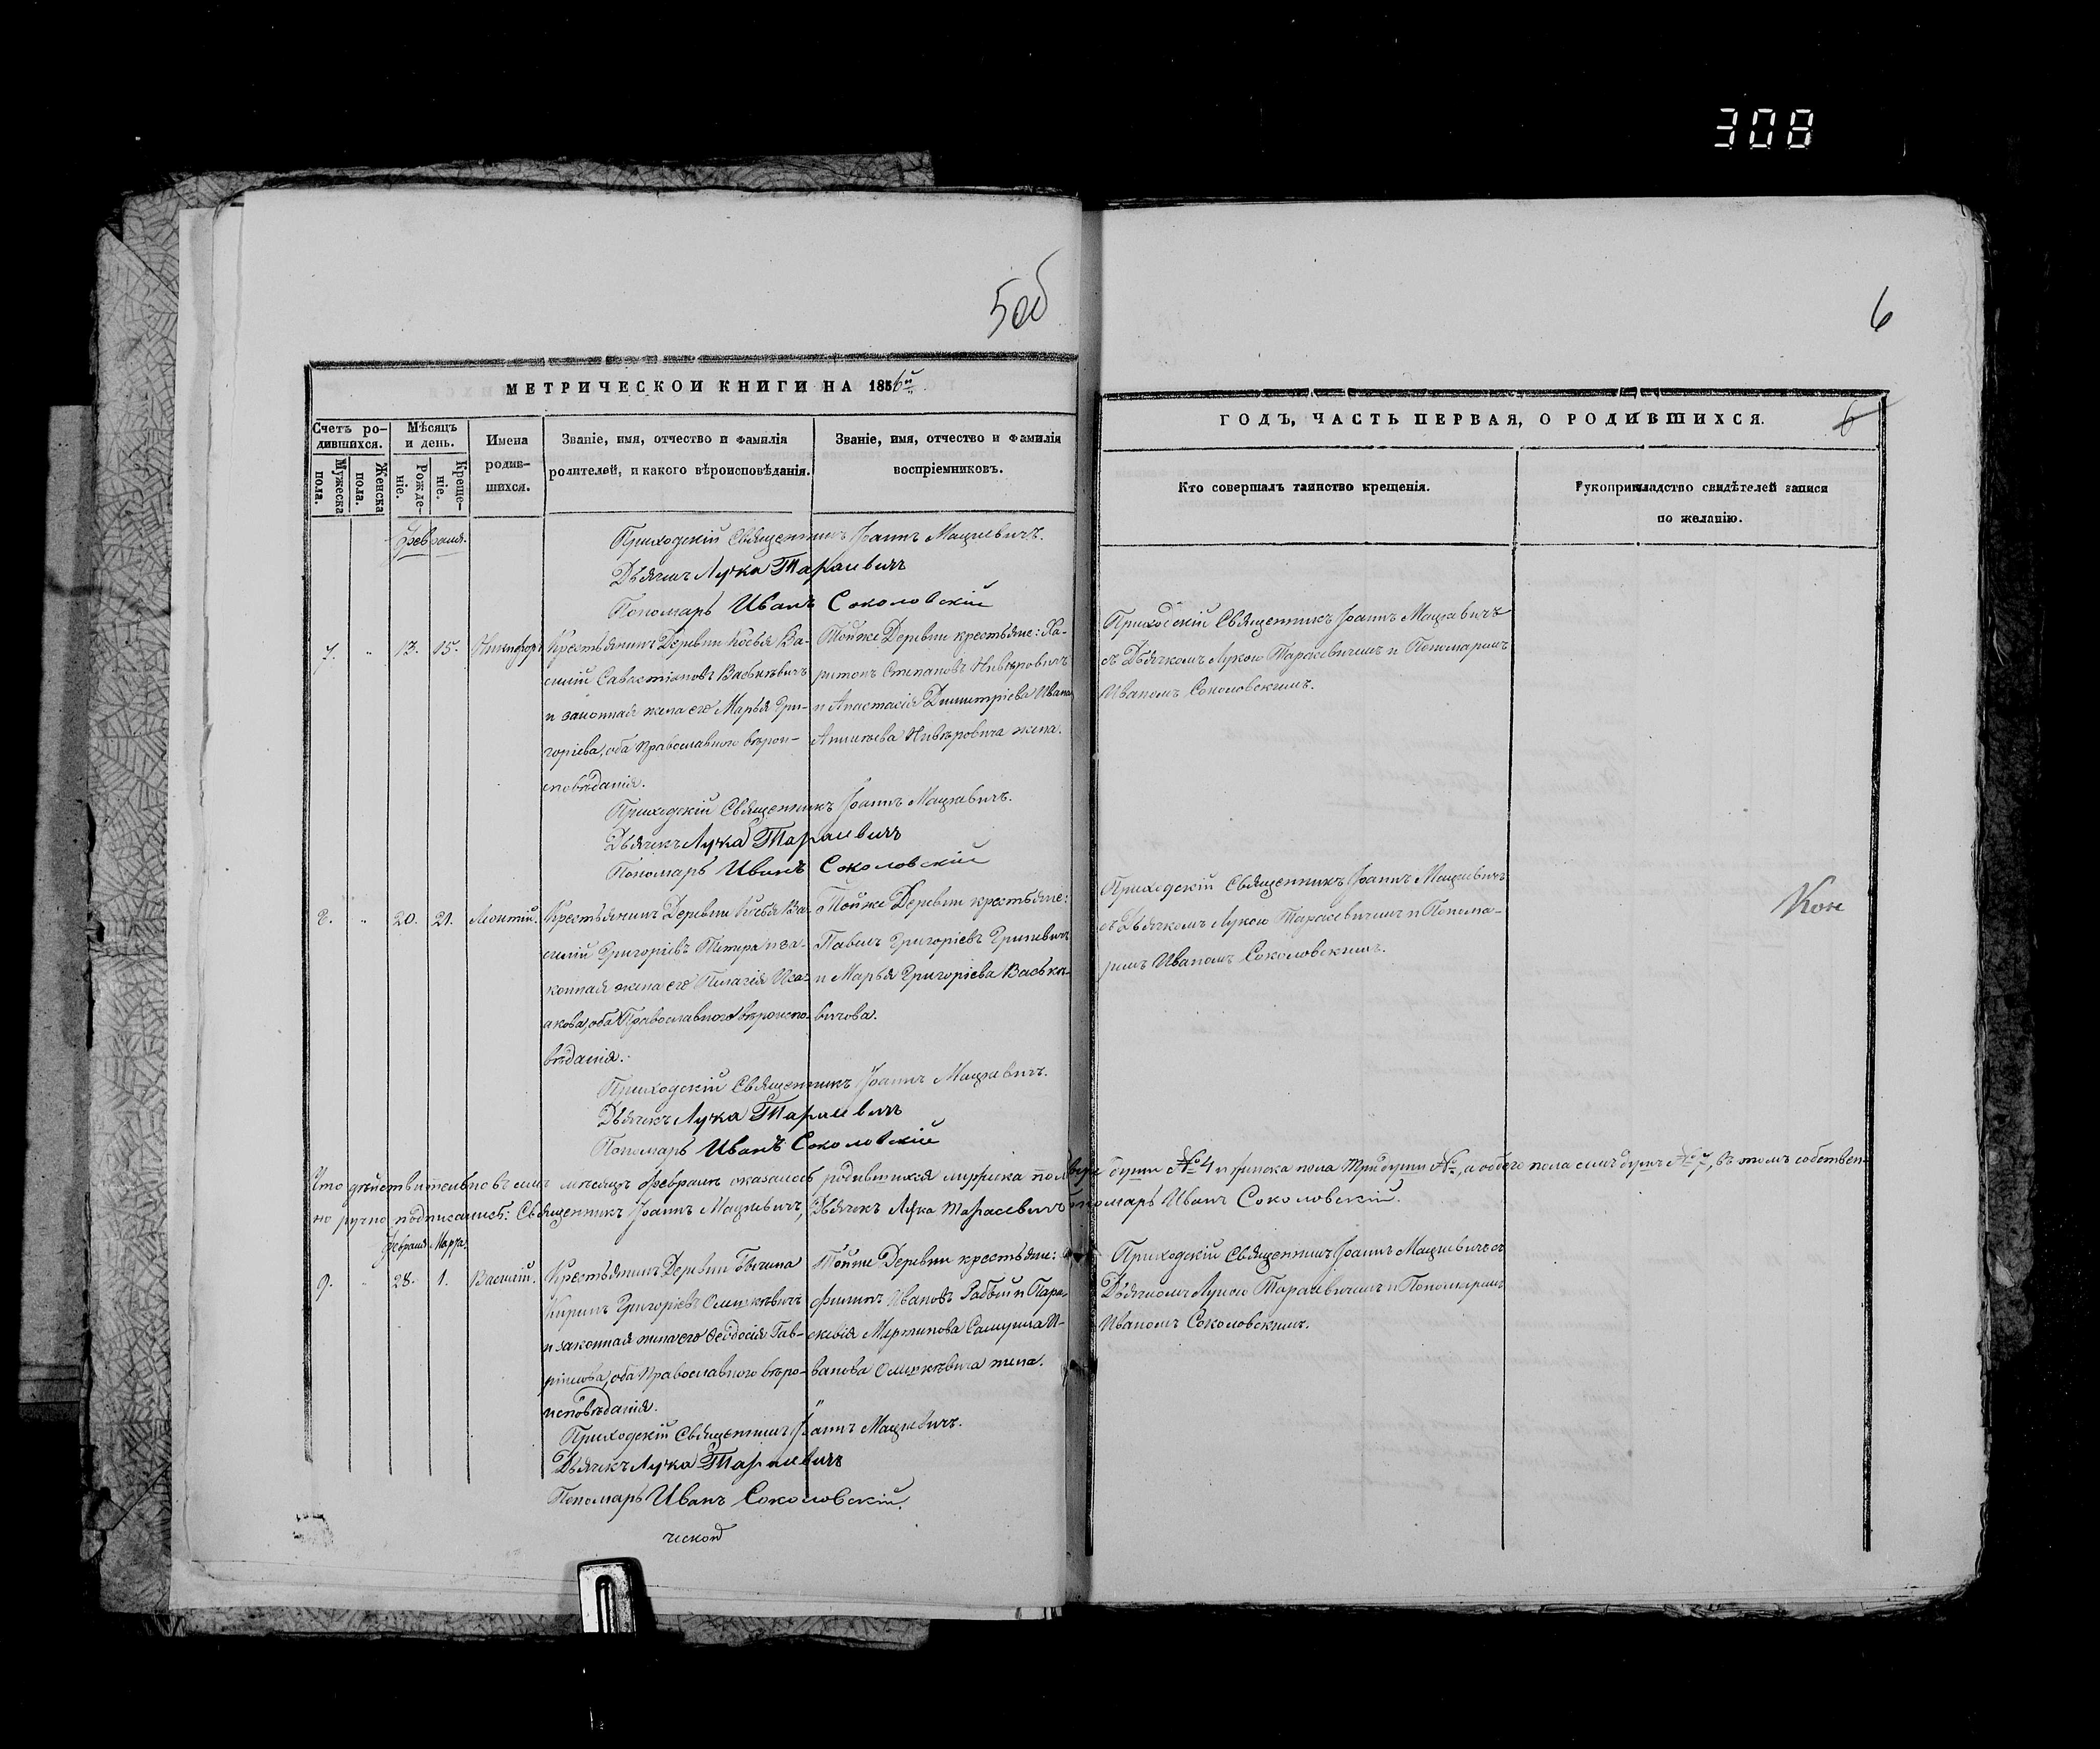 308
5об
6
МЕТРИЧЕСКОЙ КНИГИ НА 1856й
Счетъ ро-
дившихся.
Мужеска
пола.
Женска
пола.
Мѣсяцъ
и день.
Рожде-
ніе.
Креще-
ніе.
Имена
родив-
шихся.
Званіе, имя, отчество и фамилія
родителей, и какого вѣроисповѣданія.
Званіе, имя, отчество и фамилія
воспріемниковъ.
ГОДЪ, ЧАСТЬ ПЕРВАЯ, О РОДИВШИХСЯ.
6
Кто совершалъ таинство крещенія.
Рукоприкладство свидѣтелей записи
по желанію.
Февраля.
Приходскій Священникъ Іоаннъ Мацкевичъ.
Дьячекъ Лука Тарасевичъ
Пономарь Иванъ Соколовскій
7. " 13. 15. Никифоръ
Крестьянинъ Деревни Косья Ва-
силій Савастіановъ Васькѣвичъ
и законная жена его Марья Гри-
горіева, оба Православнаго вѣрои-
сповѣданія.
Тойже Деревни крестьяне: Ха-
ритонъ Степановъ Нивѣровичъ
и Анастасія Димитріева Ивана
Аникѣева Нивѣровича жена.
Приходскій Священникъ Іоаннъ Мацкевичъ
съ Дьячкомъ Лукою Тарасевичемъ и Пономаремъ
Иваномъ Соколовскимъ.
Приходскій Священникъ Іоаннъ Мацкевичъ.
Дьячекъ Лука Тарасевичъ
Пономарь Иванъ Соколовскій
8. " 20. 21. Леонтій.
Крестьянинъ Деревни Косья Ва-
силій Григоріевъ Тетера и за-
конная жена его Пелагія Иса-
акова, оба Православнаго вѣроиспо-
вѣданія.
Тойже Деревни крестьяне:
Павелъ Григоріевъ Гриневичъ
и Марья Григоріева Васькѣ-
вичова.
Приходскій Священникъ Іоаннъ Мацкевичъ
съ Дьячкомъ Лукою Тарасевичемъ и Понома-
ремъ Иваномъ Соколовскимъ.
Приходскій Священникъ Іоаннъ Мацкевичъ.
Дьячекъ Лука Тарасевичъ
Пономарь Иванъ Соколовскій
Что дѣйствительно въ семъ мѣсяцѣ Февралѣ оказалось родившихся мужеска пола души № 4 и женска пола три души №, а обоего пола семь душъ № 7, въ томъ собствен-
но ручно подписались: Священникъ Іоаннъ Мацкевичъ, Дьячекъ Лука Тарасевичъ Пономарь Иванъ Соколовскій.
Февраля Марта
9. " 28. 1. Василій.
Крестьянинъ Деревни
Кириллъ Григоріевъ Олешкѣвичъ
и законная жена его Ѳеодосія Гав-
ріилова, оба Православнаго вѣро-
исповѣданія.
Тойже Деревни крестьяне:
Филипъ Ивановъ Рабый и Пара-
скевія Мартинова Самуила И-
ванова Олешкѣвича жена.
Приходскій Священникъ Іоаннъ Мацкевичъ съ
Дьячкомъ Лукою Тарасевичемъ и Пономаремъ
Иваномъ Соколовскимъ.
Приходскій Священникъ Іоаннъ Мацкевичъ.
Дьячекъ Лука Тарасевичъ
Пономарь Иванъ Соколовскій.
ческой